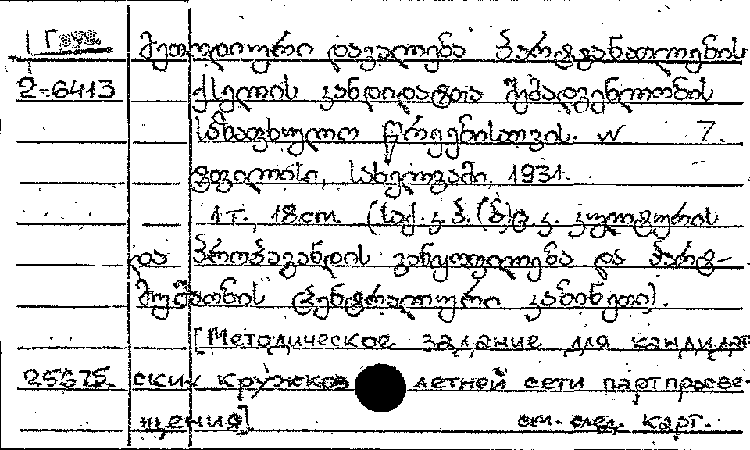 Груз. მეთოდიური დავალება პარტგანათლების
2-6413 ქსელის კანდიდატთა შემადგენლობის
საზაფხულო წრეებისთვის. N 7.
ტფილისი, სახელგამი, 1931.
1 т., 18 cm. (საქ. კ. პ. (ბ) ც. კ. კულტურის
და პროპაგანდის განყოფილება და პარტ-
მუშაობის ცენტრალური კაბინეტი).
[Методическое задание для кандидат
25575. ских кружков летней сети партпросве-
щения] см. след. карт.